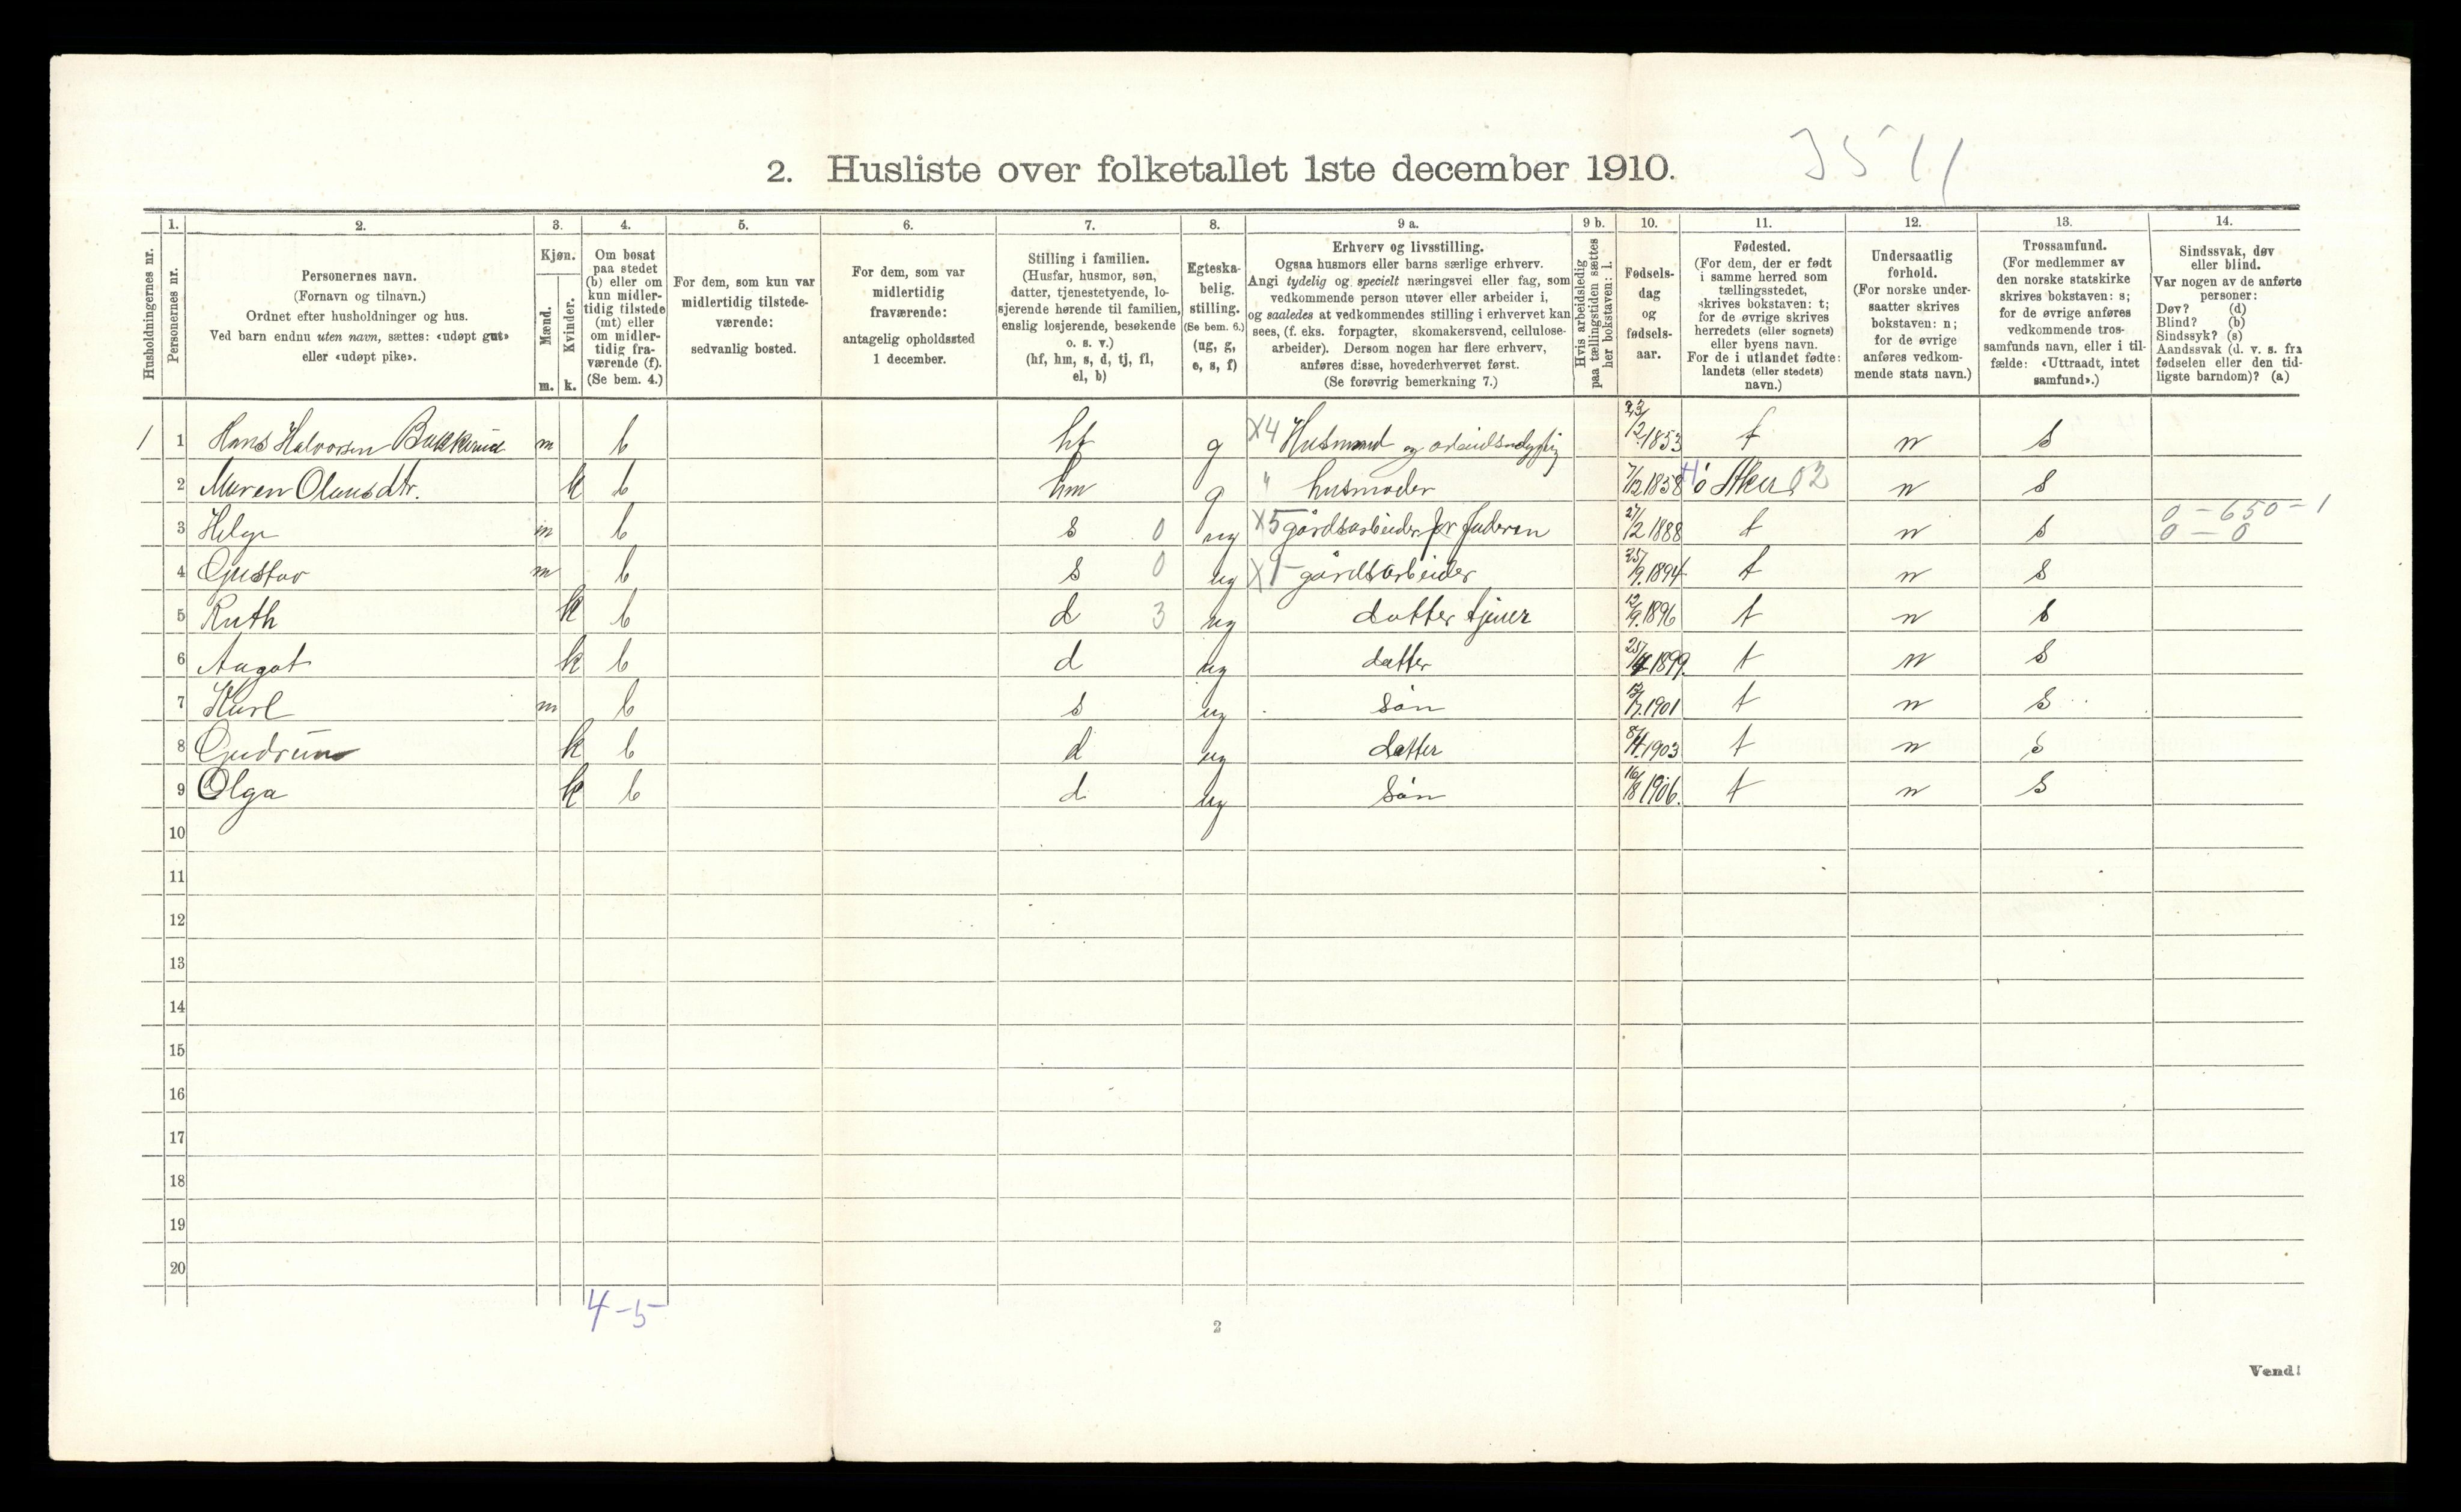 2. Husliste over folketallet 1ste december 1910.
Husholdningernes nr.
1.
Personernes nr.
2.
Personernes navn.
(Fornavn og tilnavn.)
Ordnet efter husholdninger og hus.
Ved barn endnu uten navn, sættes: «udøpt gut»
eller «udøpt pike».
3.
Kjøn.
Mænd.
Kvinder.
m. k.
4.
Om bosat
paa stedet
(b) eller om
kun midler-
tidig tilstede
(mt) eller
om midler-
tidig fra-
værende (f).
(Se bem. 4.)
5.
For dem, som kun var
midlertidig tilstede-
værende:
sedvanlig bosted.
6.
For dem, som var
midlertidig
fraværende:
antagelig opholdssted
1 december.
7.
Stilling i familien.
(Husfar, husmor, søn,
datter, tjenestetyende, lo-
sjerende hørende til familien,
enslig losjerende, besøkende
o. s. v.)
(hf, hm, s, d, tj, fl,
el, b)
8.
Egteska-
belig.
stilling.
(Se bem. 6.)
(ug, g,
e, s, f)
9 a.
Erhverv og livsstilling.
Ogsaa husmors eller barns særlige erhverv.
Angi tydelig og specielt næringsvei eller fag, som
vedkommende person utøver eller arbeider i,
og saaledes at vedkommendes stilling i erhvervet kan
sees, (f. eks. forpagter, skomakersvend, cellulose-
arbeider). Dersom nogen har flere erhverv,
anføres disse, hovederhvervet først.
(Se forøvrig bemerkning 7.)
9 b.
Hvis arbeidsledig
paa tællingstiden sættes
her bokstaven: l.
10.
Fødsels-
dag
og
fødsels-
aar.
11.
Fødested.
(For dem, der er født
i samme herred som
tællingsstedet,
skrives bokstaven: t;
for de øvrige skrives
herredets (eller sognets)
eller byens navn.
For de i utlandet fødte:
landets (eller stedets)
navn.)
12.
Undersaatlig
forhold.
(For norske under-
saatter skrives
bokstaven: n;
for de øvrige
anføres vedkom-
mende stats navn.)
13.
Trossamfund.
(For medlemmer av
den norske statskirke
skrives bokstaven: s;
for de øvrige anføres
vedkommende tros-
samfunds navn, eller i til-
fælde: «Uttraadt, intet
samfund».)
14.
Sindssvak, døv
eller blind.
Var nogen av de anførte
personer:
Døv? (d)
Blind? (b)
Sindssyk? (s)
Aandssvak (d. v. s. fra
fødselen eller den tid-
ligste barndom)? (a)
1 1 Hans Halvorsen Bakkerud m b hf g X4 Husmand og 1853 t n s
2 Maren Olausdtr. k b hm g " husmoder 7/2 1858 Aker 02 n s
0 - 650 - 1
3 Helge m b s 0 ug X5 gårdsarbeider for faderen 27/2 1888 t n s 0 - 0
4 Gustav m b s 0 ug X gårdsarbeider 25/9. 1894 t n s
5 Ruth k b d 3 ug datter tjener 12/9. 1896 t n s
6 Aagot k b d ug datter 1899. t n s
7 Karl m b s ug søn 1901 t n s
8 Gudrun k b d ug datter 8/4. 1903 t n s
9 Olga k b d ug søn 16/8 1906. t n s
10
11
12
13
14
15
16
17
18
19
20
4-5
2
Vend!